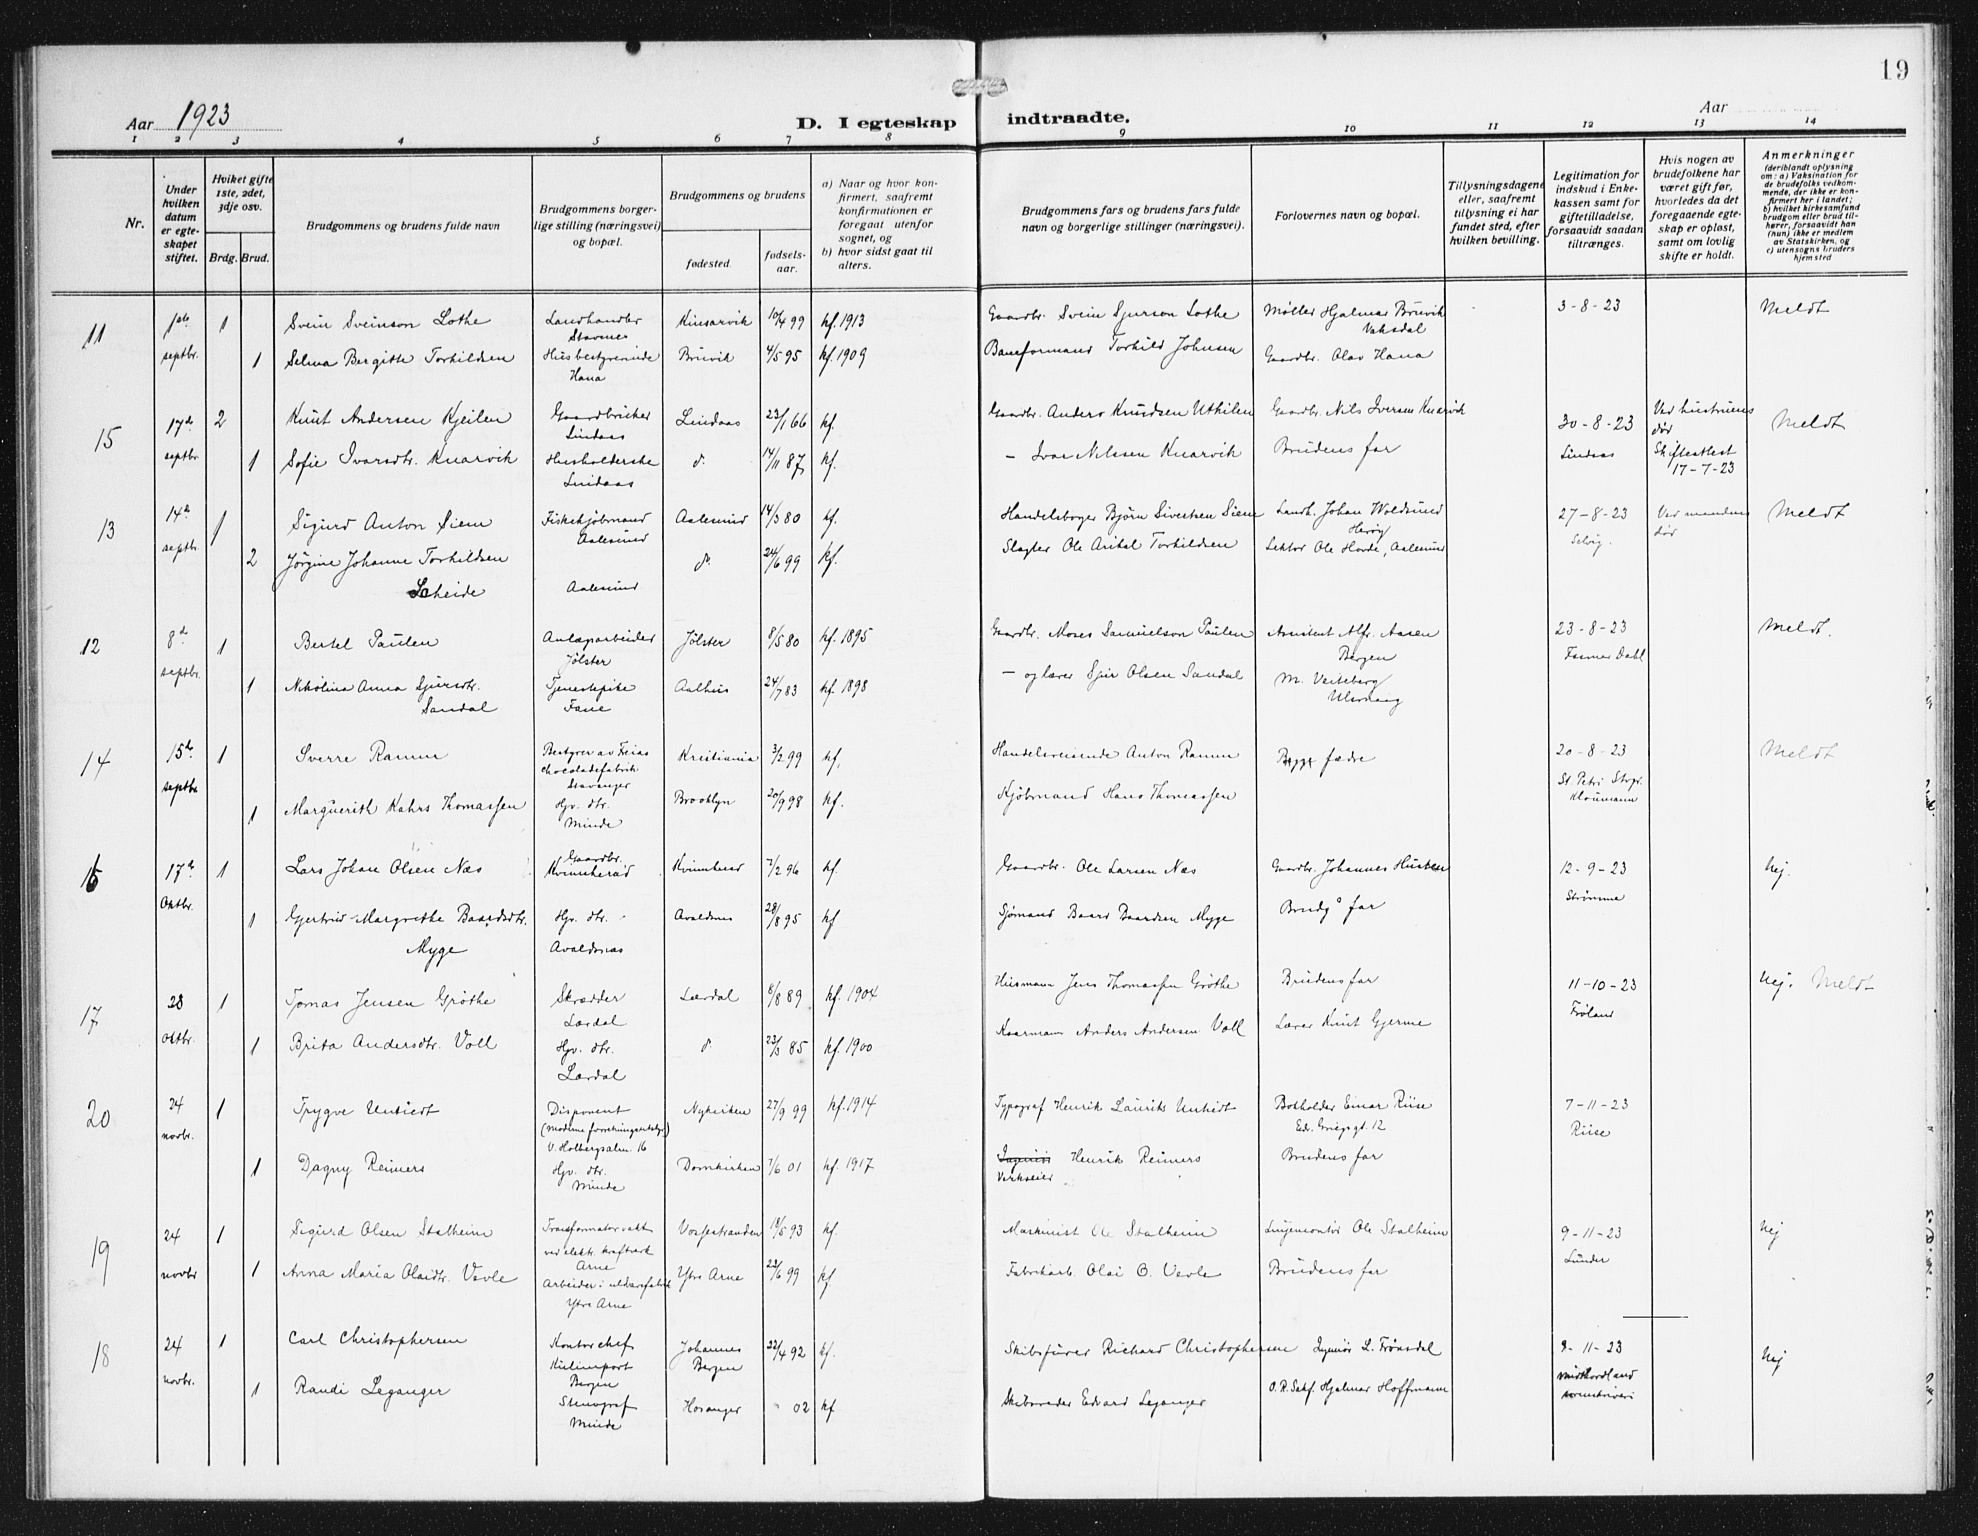 19
Aar 1923
D. I egteskap indtraadte.
Aar
1 2 3 4 5 6 7 8 9 10 11 12 13 14
Nr.
Under hvilken datum er egteskapet stiftet.
Hvilket gifte 1ste, 2det, 3dje osv.
Brdg. Brud.
Brudgommens og brudens fulde navn
Brudgommens borgerlige stilling (næringsvei) og bopæl.
Brudgommens og brudens
fødested.
fødselsaar.
a) Naar og hvor konfirmert, saafremt konfirmationen er foregaat utenfor sognet, og
b) hvor sidst gaat til alters.
Brudgommens fars og brudens fars fulde navn og borgerlige stillinger (næringsvei).
Forlovernes navn og bopæl.
Tillysningsdagene eller, saafremt tillysning ei har fundet sted, efter hvilken bevilling.
Legitimation for indskud i Enkekassen samt for giftetilladelse, forsaavidt saadan tiltrænges.
Hvis nogen av brudefolkene har været gift før, hvorledes da det foregaaende egteskap er opløst, samt om lovlig skifte er holdt.
Anmerkninger
(deriblandt oplysning om: a) Vaksination for de brudefolks vedkommende, der ikke er konfirmert her i landet; b) hvilket kirkesamfund brudgom eller brud tilhører, forsaavidt han (hun) ikke er medlem av Statskirken, og c) utensogns bruders hjemsted
11 septbr. 1 Svein Sveinson Lothe Landhandler Stavenes Kinsarvik 10/4 99 kf. 1913 Gaardbr. Svein Sjurson Lothe Møller Hjalmar Bruvik Vaksdal 3-8-23 Meldt
1 Selma Bergitte Torkildsen Husbestyrerinde Hana Bruvik 4/5 95 kf. 1909 Baneformand Torkild Johnsen Gaardbr. Olav Hana
15 17de septbr. 2 Knut Andersen Kjeilen Gaardbruker Lindaas Lindaas 23/1 66 kf. Gaardbr. Anders Knudsen Uthilen Gaardbr. Nils Iversen Knarvik 30-8-23 Lindaas Ved hustruens død Skifteattest 17-7-23 Meldt
1 Sofie Ivarsdtr. Knarvik Husholderske Lindaas do. 14/11 87 kf. - Ivar Nilssen Knarvik Brudens far
13 14de septbr. 1 Sigurd Anton Siem Fiskekjøbmand Aalesund Aalesund 14/3 80 kf. Handelsborger Bjørn Sivertsen Siem Landh. Johan Woldsund Herøy 27-8-23 Selvig. Ved mandens død Meldt
2 Jørgine Johanne Torkildsen Scheide Aalesund do. 24/6 99 kf. Slagter Ole Arital Torkildsen Lektor Ole Hovde, Aalesund
12 8de septbr. 1 Bertel Paulen Anlægsarbeider Jølster Jølster 8/5 80 kf. 1895 Gaardbr. Moses Samuelson Paulen Assistent Alfr. Aasen Bergen 23-8-23 Fasmer Dahl Meldt.
1 Nikolina Anna Sjursdtr. Sandal Tjenestepike Fane Aalhus 24/7 83 kf. 1898 - og lærer Sjur Olsen Sandal M. Veiteberg
14 15de septbr. 1 Sverre Ramm Bestyrer av Freias chocoladefabrik Stavanger Kristiania 3/2 99 kf. Handelsreisende Anton Ramm Begge fædre 20-8-23 St. Petri Stvgr. Kloumann Meldt
1 Marguerith Kahrs Thomassen Hjv. dtr. Minde Brooklyn 20/9 98 kf. Kjøbmand Hans Thomassen
16 17de Oktbr. 1 Lars Johan Olsen Næs Gaardbr. Kvinnherad Kvinnherad 7/2 96 kf. Gaardbr. Ole Larsen Næs Gaardbr. Johannes Husten 12-9-23 Strømme Nej.
1 Gjertrud Margrethe Baardsdtr. Myge Hjv. dtr. Avaldsnes Avaldsnes 28/8 95 kf Sjømand Baard Baardsen Myge Brudgs far
17 28 Oktbr. 1 Tomas Jensen Grøthe Skrædder Lærdal Lærdal 8/8 89 kf. 1904 Husmann Jens Thomassen Grøthe Brudens far 11-10-23 Frøland Nej. Meldt
1 Brita Andersdtr. Voll Hjv. dtr. Lærdal do. 23/3 85 kf. 1900 Kaarmann Anders Andersen Voll Lærer Knut Gjerme
20 24 novbr. 1 Trygve Untiedt Disponent V. Holbergsalm. 16 Nykirken 27/9 99 kf. 1914 Typograf Henrik Laurits Untiedt Bokholder Einar Riise Edv. Griegs gt. 12 7-11-23 Riise
1 Dagny Reimers Hjv. dtr. Minde Domkirken 7/6 01 kf. 1917 Ingeniør Henrik Reimers Verkseier Brudens far
19 24 novbr 1 Sigurd Olsen Stalheim Transformatorvakt ved elektr. kraftverk Arne Vossestranden 19/5 93 kf. Maskinist Ole Stalheim Linjemontør Ole Stalheim 9-11-23 Lunder Nej
1 Anna Maria Olaidtr. Vevle Arbeider i uldvarefabrik Ytre Arne Ytre Arne 23/6 99 kf Fabrikarb. Olai O. Vevle Brudens far
18 24 novbr. 1 Carl Christophersen Kontorchef Kulimport Bergen Johannes Bergen 22/4 92 kf. Skibsfører Richard Christophersen Ingeniør L. Frønsdal 9-11-23 Midthordland sorenskriveri Nej
1 Randi Leganger Stenograf Minde Hosanger 02 kf Skibsreder Edvard Leganger O.R.Sakf. Hjalmar Hoffmann